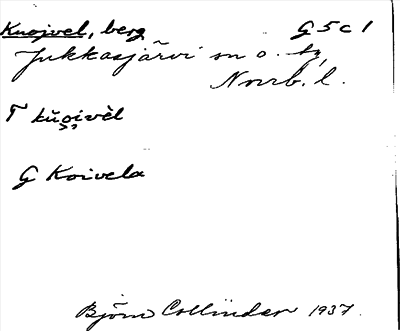 Kuojvel, berg G5c1
Jukkasjärvi sn o. tg
Norrb. l.
T kŭo̭i̭vèl
G Koivela
Björn Collinder 1937.